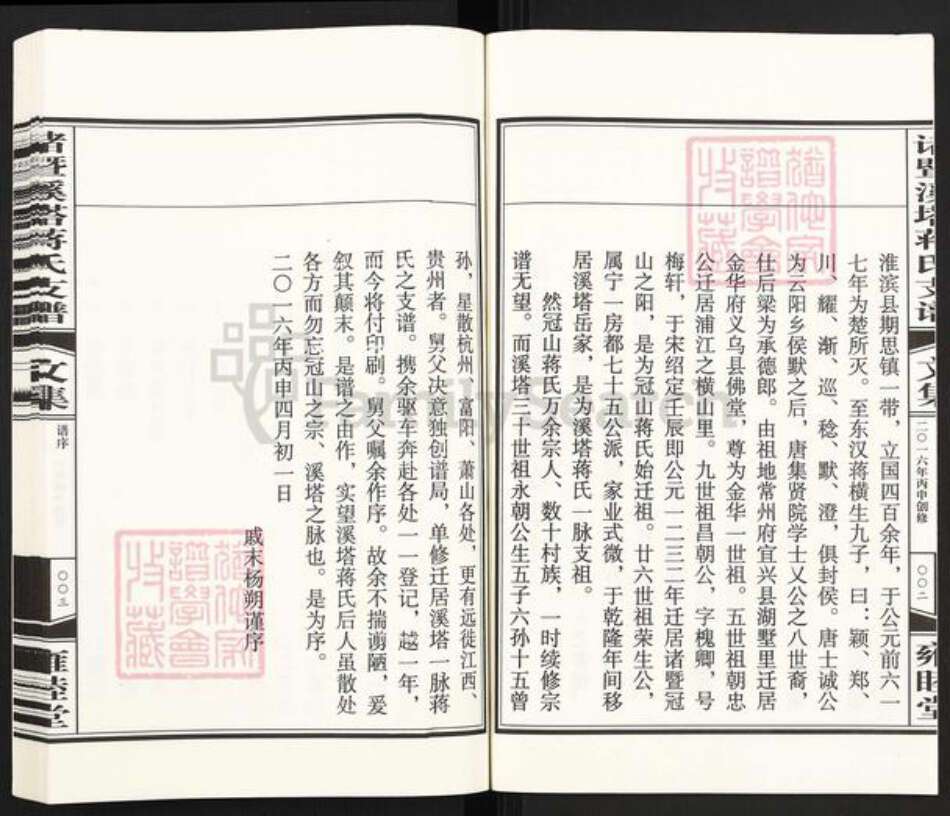 诸暨溪塔蒋氏支谱
文集
二〇一六年丙申创修
〇〇二
雍睦堂
淮滨县期思镇一带，立国四百余年，于公元前六一
七年为楚所灭。至东汉蒋横生九子，曰：颖、郑、
川、耀、渐、巡、稔、默、澄，俱封侯。唐士诚公
为云阳乡侯默之后，唐集贤院学士乂公之八世裔，
仕后梁为承德郎。由祖地常州府宜兴县湖㙛里迁居
金华府义乌县佛堂，尊为金华一世祖。五世祖朝忠
公迁居浦江之横山里。九世祖昌朝公，字槐卿，号
梅轩，于宋绍定壬辰即公元一二三二年迁居诸暨冠
山之阳，是为冠山蒋氏始迁祖。廿六世祖荣生公，
属宁一房都七十五公派，家业式微，于乾隆年间移
居溪塔岳家，是为溪塔蒋氏一脉支祖。
然冠山蒋氏万余宗人、数十村族，一时续修宗
谱无望。而溪塔三十世祖永朝公生五子六孙十五曾
孙，星散杭州、富阳、萧山各处，更有远徙江西、
贵州者。舅父决意独创谱局，单修迁居溪塔一脉蒋
氏之支谱。携余驱车奔赴各处一一登记，越一年，
而今将付印刷。舅父嘱余作序。故余不揣谫陋，爰
叙其颠末。是谱之由作，实望溪塔蒋氏后人虽散处
各方而勿忘冠山之宗、溪塔之脉也。是为序。
二〇一六年丙申四月初一日
戚末杨朔谨序
诸暨溪塔蒋氏支谱
文集
谱序
〇〇三
雍睦堂
犹他家
谱学会
收藏
犹他家
谱学会
收藏
FamilySearch